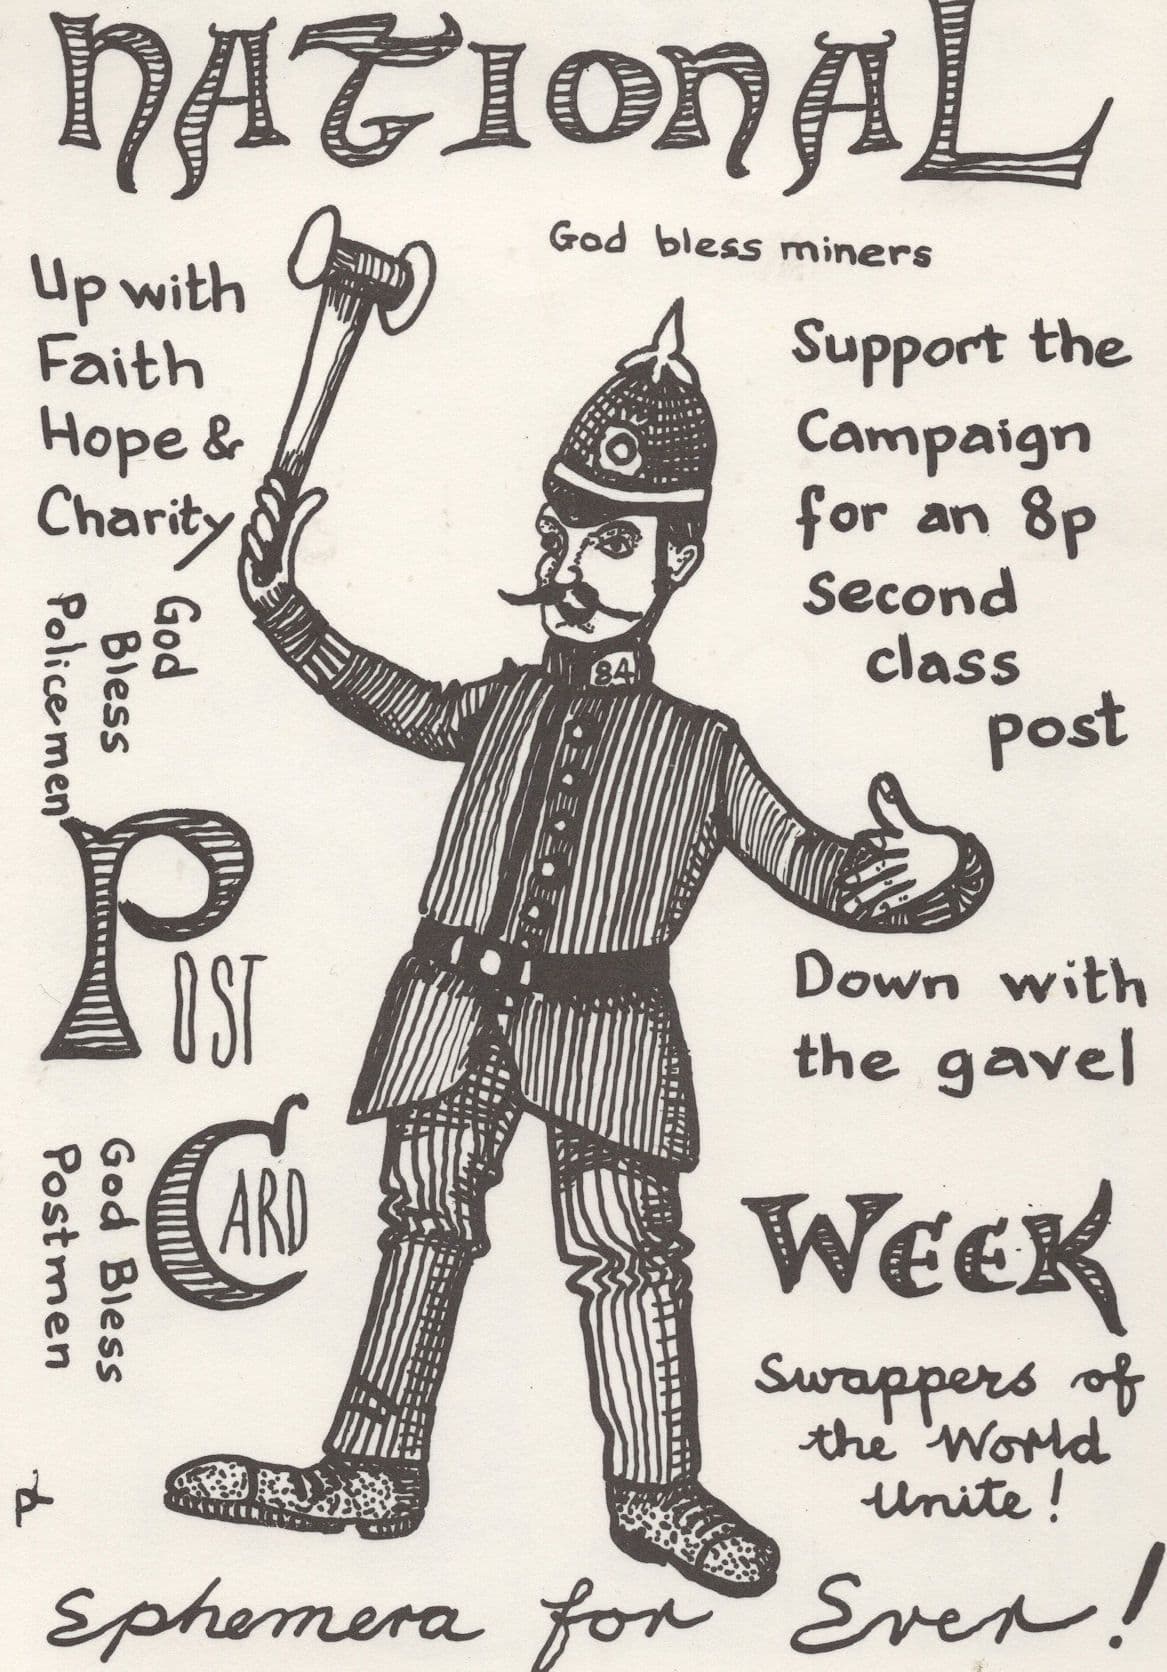 NATIONAL
God bless miners
Up with
Faith
Hope &
Charity
Support the
Campaign
for an 8p
second
class
post
God
Bless
Policemen
84
POST
Down with
the gavel
CARD
God Bless
Postmen
WEEK
Swappers of
the World
Unite!
Ephemera for Ever!